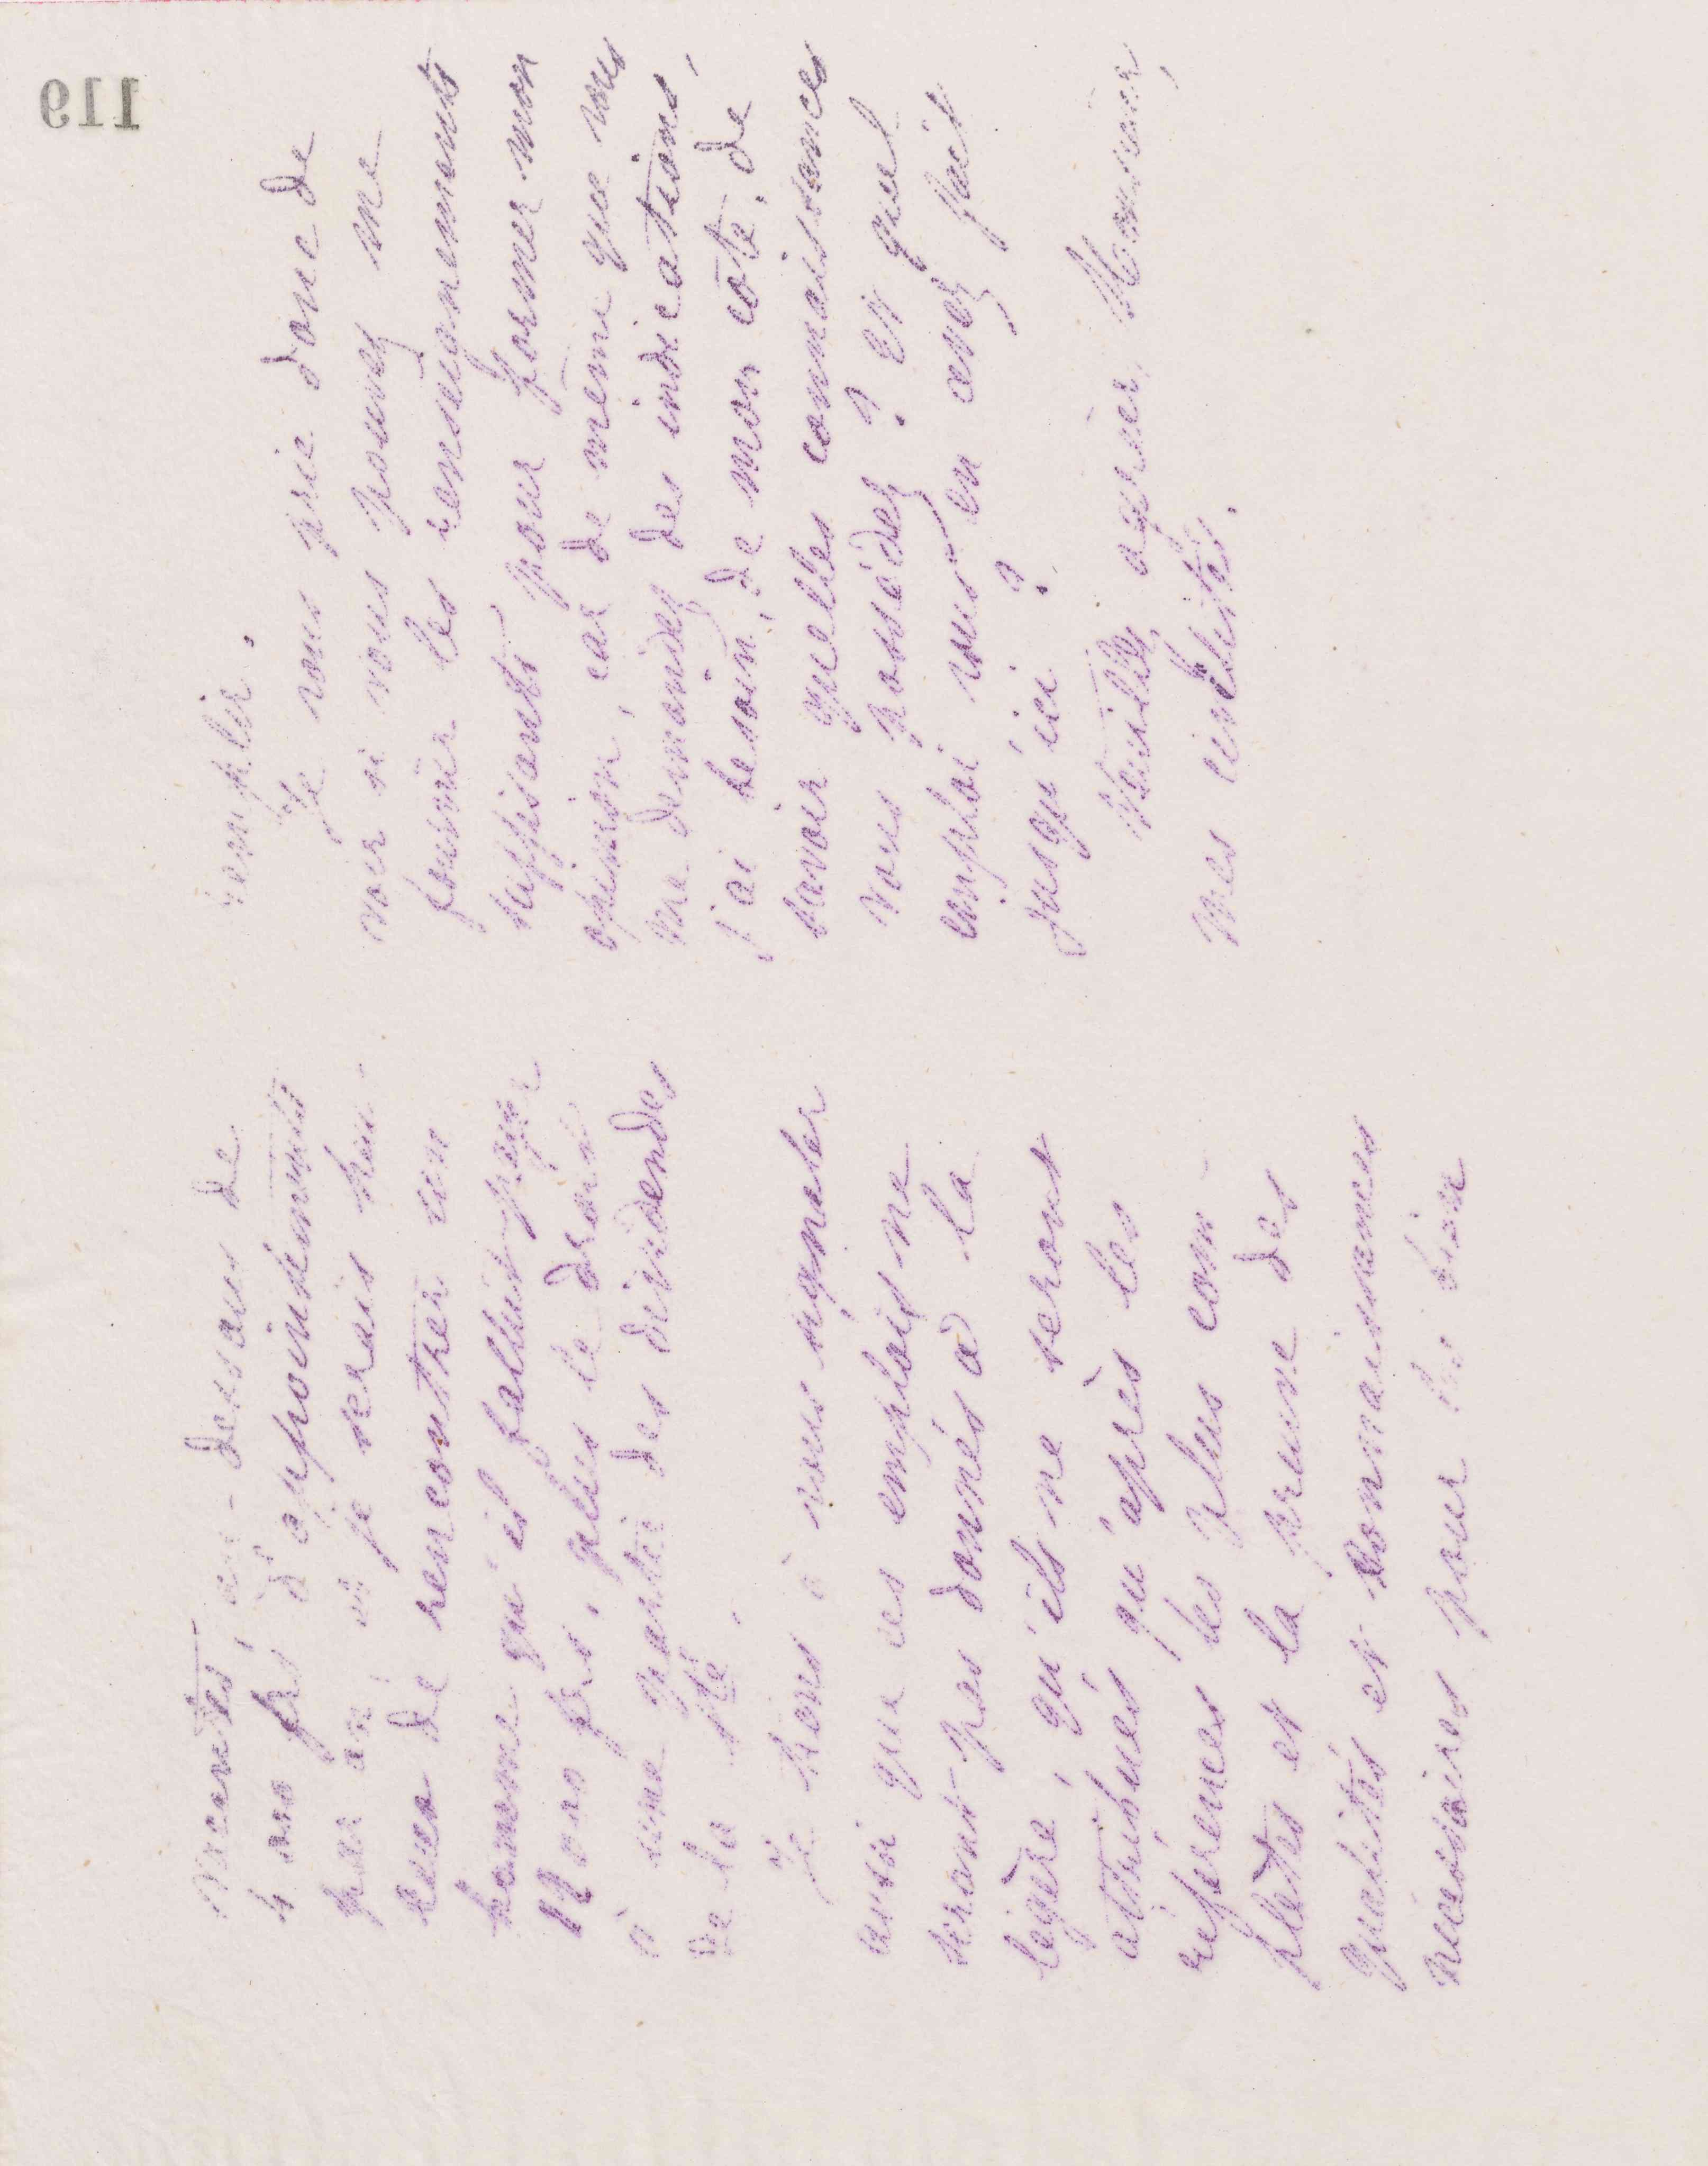 119
vacants, au-dessous de
4 000 frs d'appointements
par an, si je serais heu-
reux de rencontrer un
homme qu'il fallût payer
12 000 frs, plus le droit
à une partie des dividendes
de la Sté.
Je tiens à vous signaler
aussi que ces emplois ne
seront pas donnés à la
légère, qu'ils ne seront
attribués qu'après les
références les plus com-
plètes et la preuve des
qualités et connaissances
nécessaires pour les bien
remplir.
Je vous prie donc de
voir si vous pouvez me
fournir les renseignements
suffisants pour former mon
opinion, car de même que vous
me demandez des indications,
j'ai besoin, de mon côté, de
savoir quelles connaissances
vous possédez ? et quel
emploi vous en avez fait
jusqu'ici ?
Veuillez agréer, Monsieur,
mes civilités.